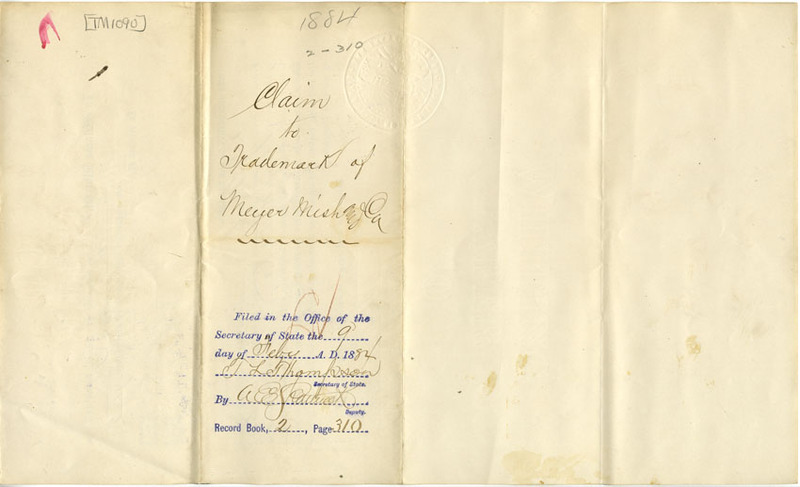 [TM1090]
1884
2-310
Claim
to
Trademark of
Meyer Mish & Co
Filed in the Office of the
Secretary of State the 9
day of Feby A. D. 1884
T L Thompson
Secretary of State.
By A B
Deputy.
Record Book, 2, Page 310